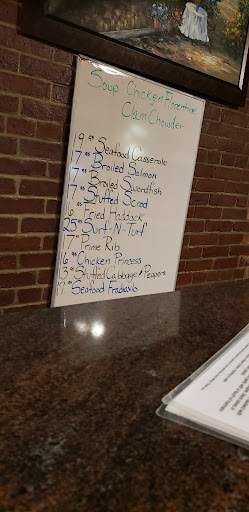 Soup Chicken Florentine
Clam Chowder
19 Seafood Casserole
17 Broiled Salmon
17 Broiled Swordfish
17 Stuffed Scrod
16 Fried Haddock
25 Surf-N-Turf
17 Prime Rib
16 Chicken Princess
13 Stuffed Cabbage & Peppers
17 Seafood Fradiavlo